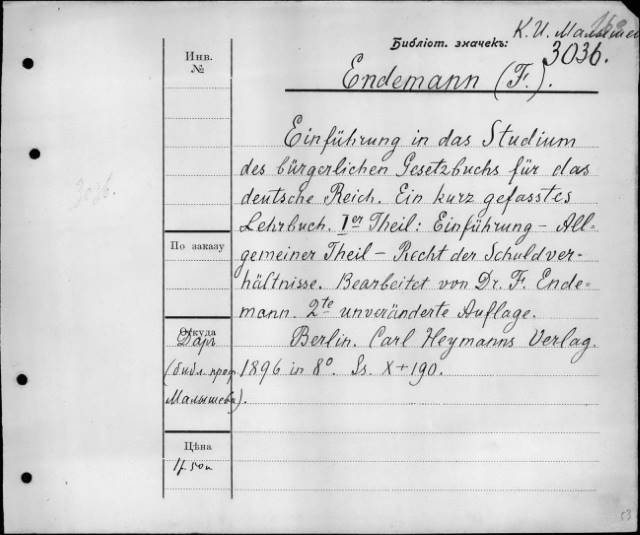 К. И. Малышев
Библіот. значекъ:
3036.
Endemann (F.).
Инв.
№
Einführung in das Studium
des bürgerlichen Gesetzbuchs für das
deutsche Reich. Ein kurz gefasstes
Lehrbuch. Ier Theil: Einführung – All-
gemeiner Theil – Recht der Schuldver-
hältnisse. Bearbeitet von Dr. F. Ende-
mann. 2te unveränderte Auflage.
Berlin. Carl Heymanns Verlag.
1896 in 8°. Ss. X+190.
3036.
По заказу
Откуда
Даръ
(библ. проф.
Малышева).
Цѣна
53